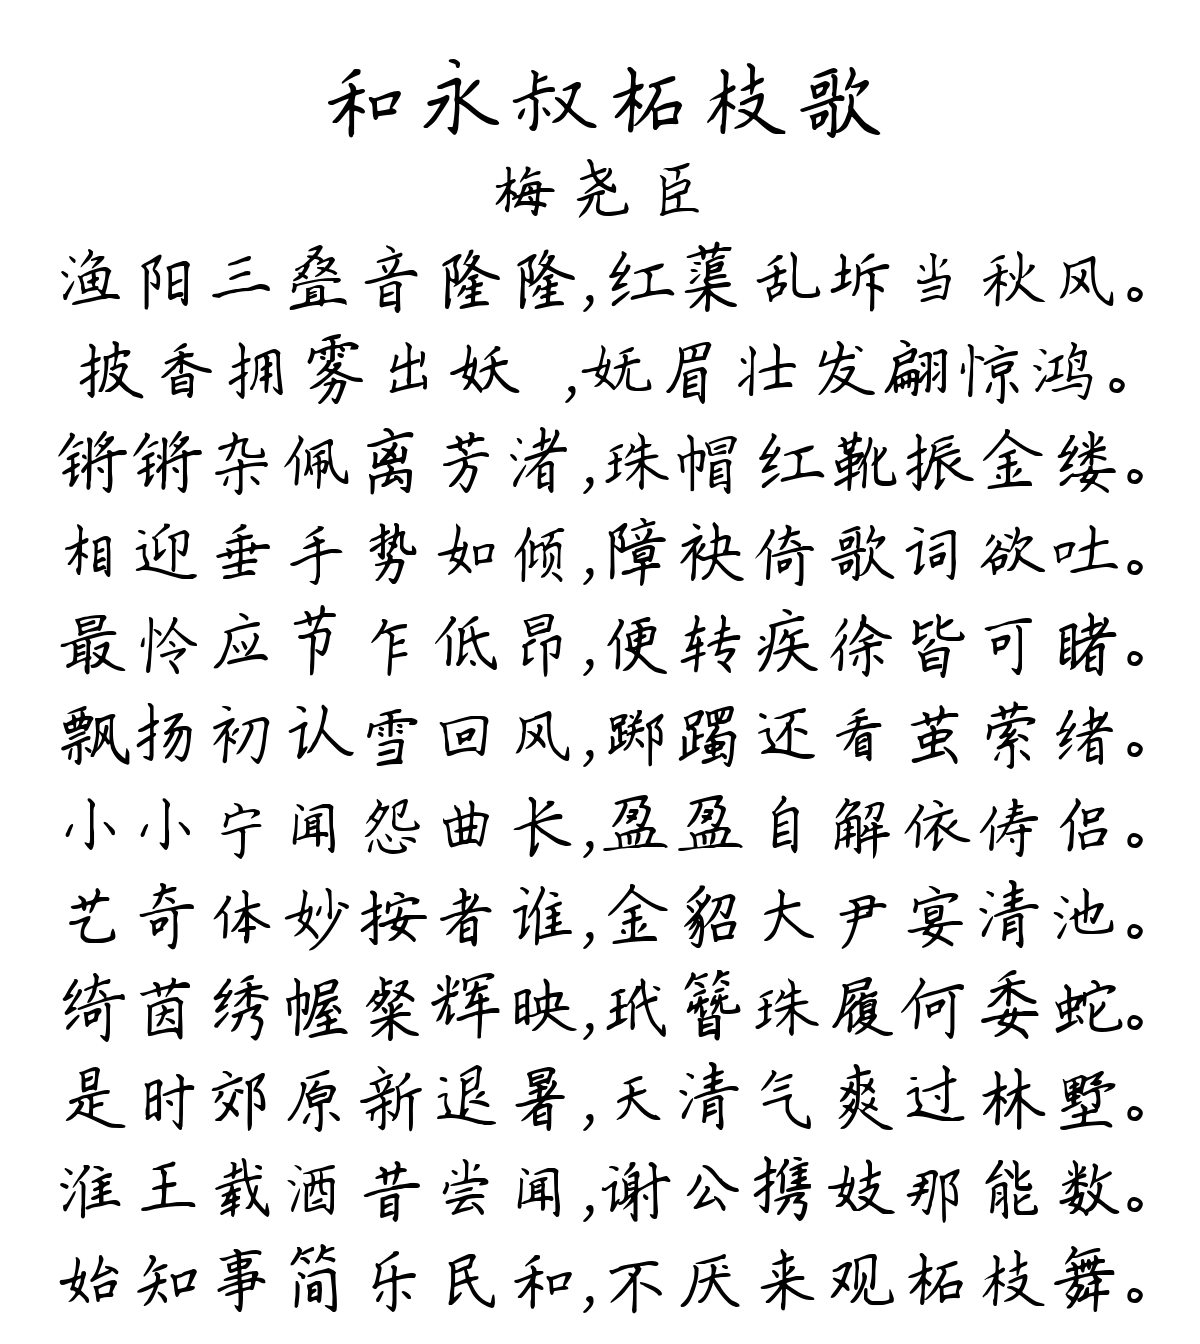 和永叔柘枝歌
梅尧臣
渔阳三叠音隆隆,红蕖乱坼当秋风。
披香拥雾出妖 ,妩眉壮发翩惊鸿。
锵锵杂佩离芳渚,珠帽红靴振金缕。
相迎垂手势如倾,障袂倚歌词欲吐。
最怜应节乍低昂,便转疾徐皆可睹。
飘扬初认雪回风,踯躅还看茧萦绪。
小小宁闻怨曲长,盈盈自解依俦侣。
艺奇体妙按者谁,金貂大尹宴清池。
绮茵绣幄粲辉映,玳簪珠履何委蛇。
是时郊原新退暑,天清气爽过林墅。
淮王载酒昔尝闻,谢公携妓那能数。
始知事简乐民和,不厌来观柘枝舞。